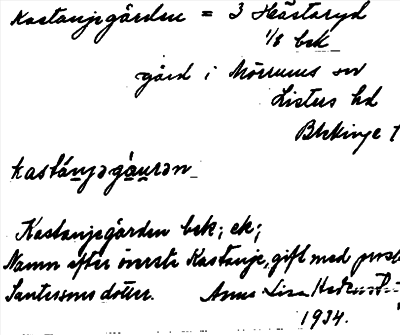 Kastanjegården = 3 Hästaryd
1/8 bek
gård i Mörrums sn
Listers hd
Blekinge
kastánjəgåu̯rən
Kastanjegården bek; ek;
Namn efter överste Kastanje, gift med prost
Santessons dotter. Anna Lisa
1934.